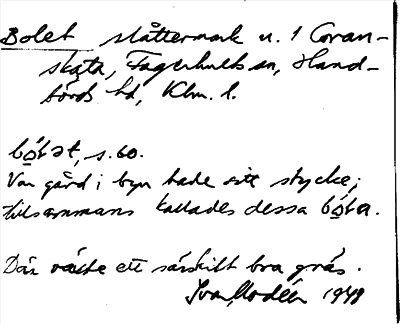 Bolet slåttermark u. 1 Goran-
skata, Fagerhults sn, Hand-
börds hd, Klm. l.
bó̱tət, s. 60.
Var gård i byn hade sitt stycke;
tillsammans kallades dessa bó̱ta.
Där växte ett särskilt bra gräs.
Ivar Modéer 1948